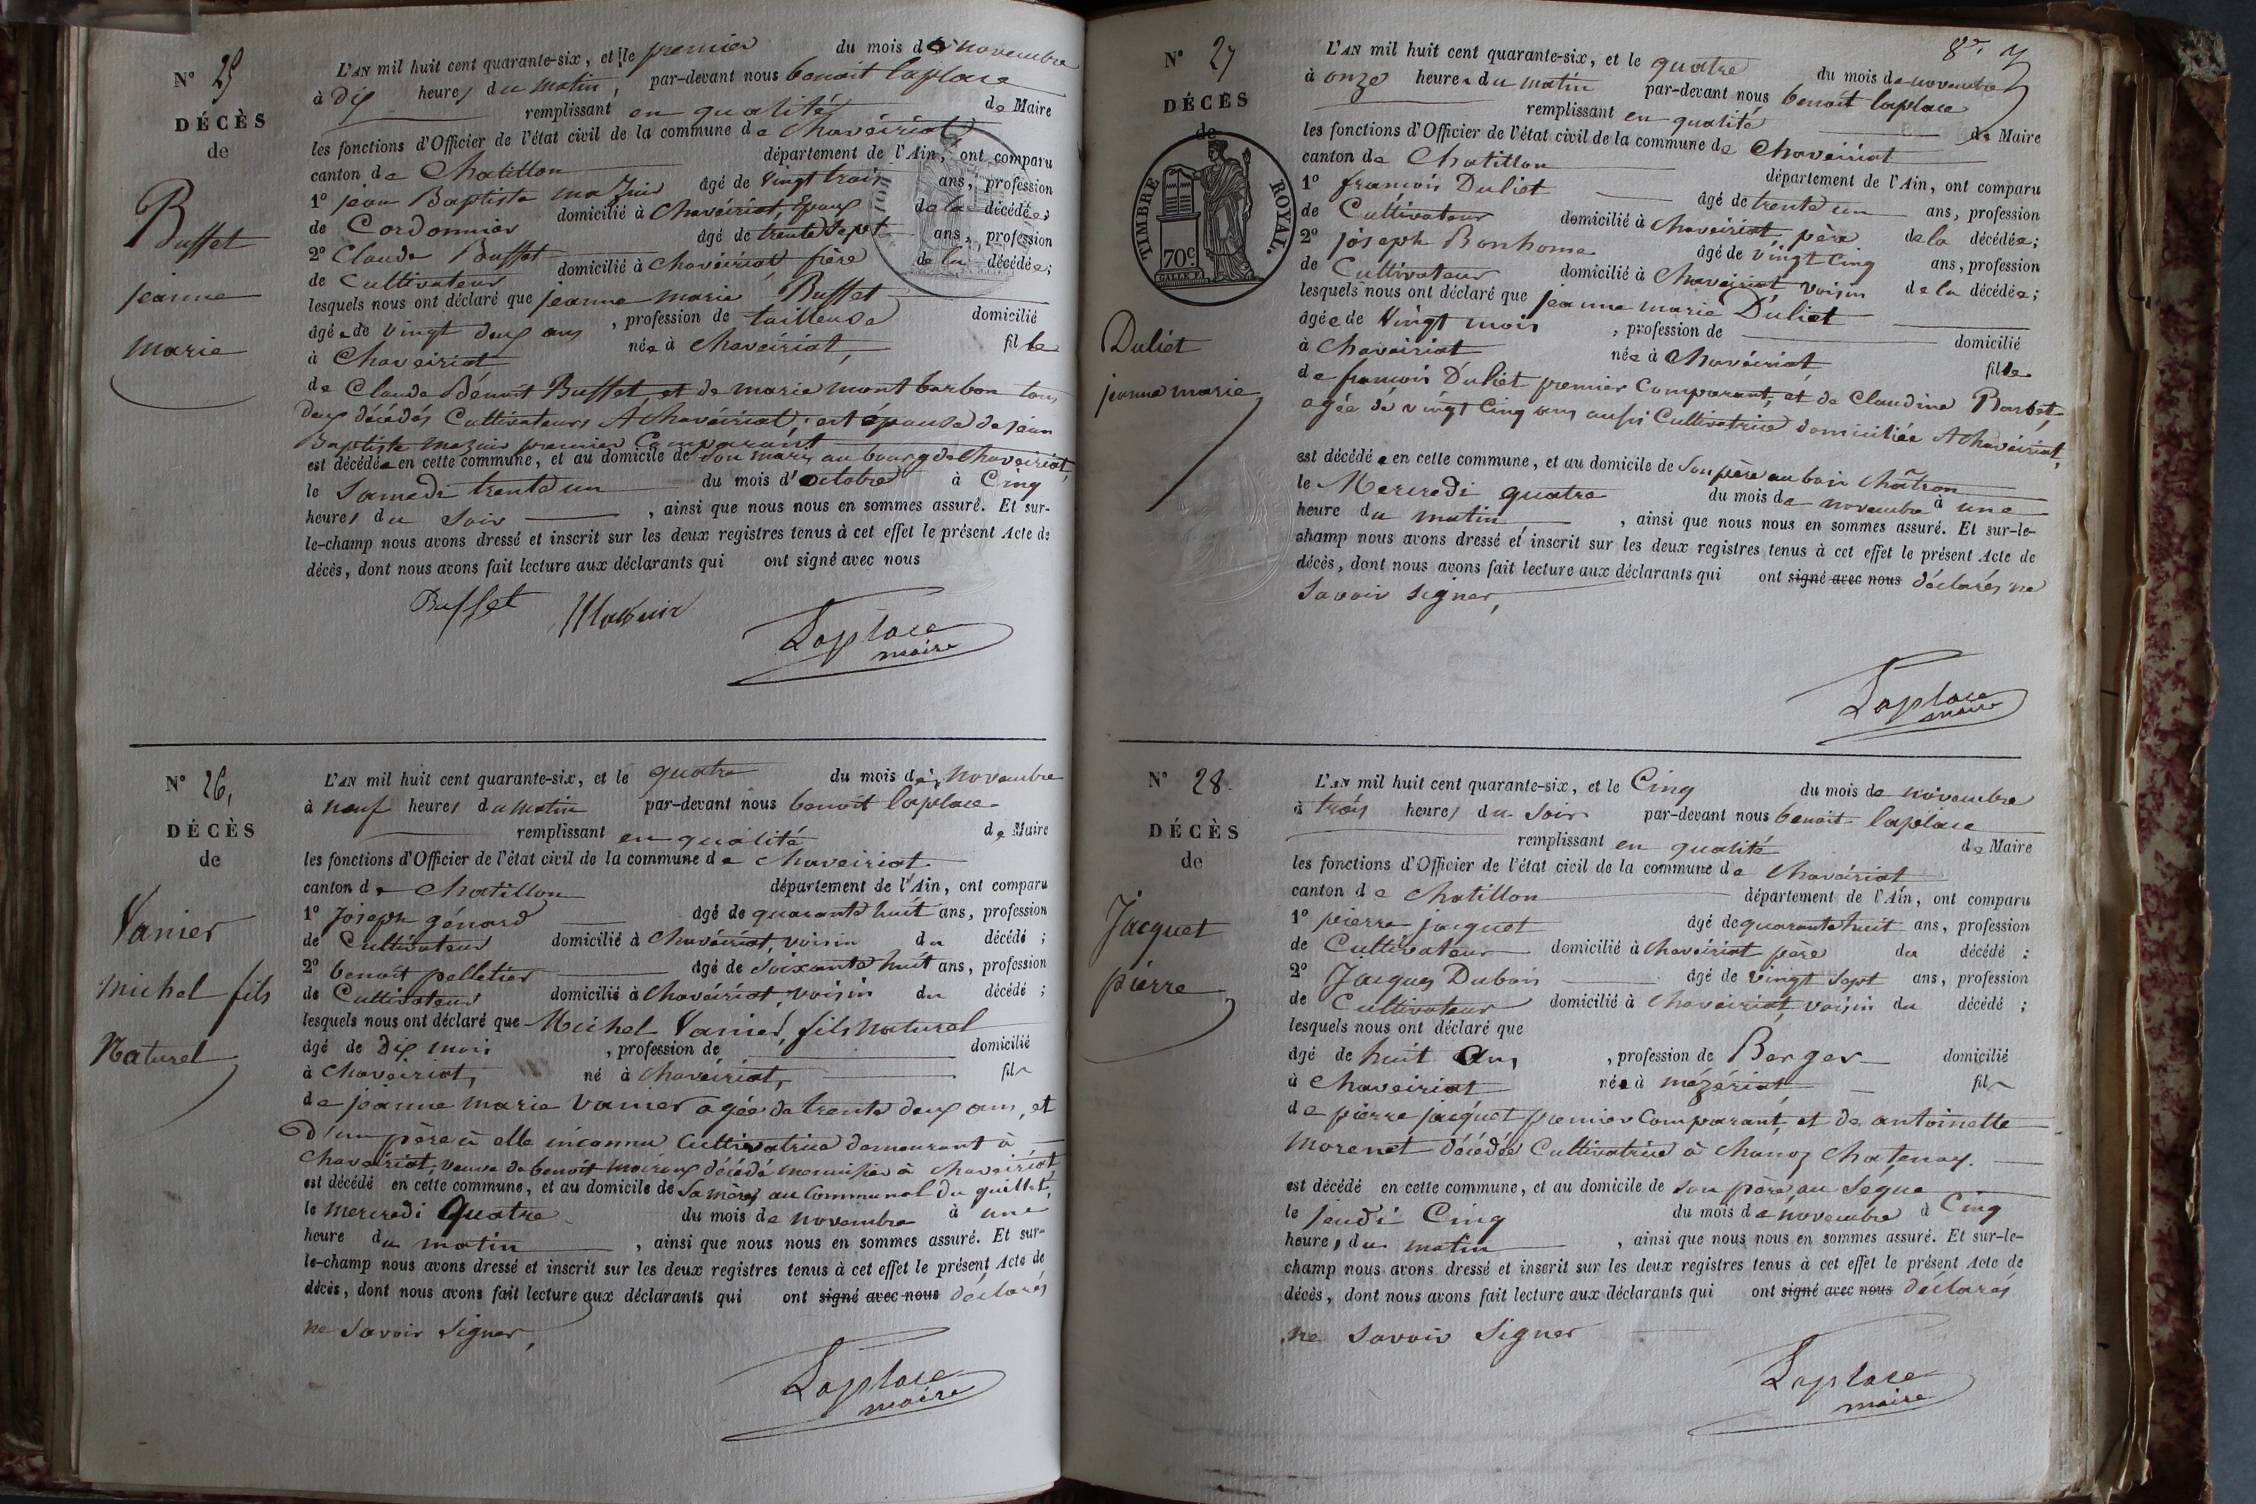 N° 25
DÉCÈS
de
Buffet
jeanne
marie
L'AN mil huit cent quarante-six, et le premier du mois de novembre
à Dix heures du matin, par-devant nous benoit laplace
remplissant en qualité de Maire
les fonctions d'Officier de l'état civil de la commune de Chavéiriat
canton de Chatillon département de l'Ain, ont comparu
1° jean Baptiste mazuir âgé de vingt trois ans, profession
de Cordonnier domicilié à Chavéiriat, Epoux de la décédée;
2° Claude Buffet âgé de trente sept ans, profession
de Cultivateur domicilié à Chavéiriat frère de la décédée;
lesquels nous ont déclaré que jeanne marie Buffet
âgée de vingt deux ans, profession de tailleuse domicilié
à Chaveiriat née à Chaveiriat, fille
de Claude Bénoit Buffet, et de marie mont barbon tous
deux décédés Cultivateurs A Chavéiriat; est épouse de jean
Baptiste mazuir premier Comparant
est décédée en cette commune, et au domicile de son mari, au bourg de Chaveiriat,
le Samedi trente un du mois d'octobre à Cinq
heures du soir, ainsi que nous nous en sommes assuré. Et sur-
le-champ nous avons dressé et inscrit sur les deux registres tenus à cet effet le présent Acte de
décès, dont nous avons fait lecture aux déclarants qui ont signé avec nous
Buffet Mazuir
Laplace
maire
N° 26,
DÉCÈS
de
Vanier
michel fils
Naturel
L'AN mil huit cent quarante-six, et le quatre du mois de novembre
à neuf heures du matin par-devant nous benoit laplace
remplissant en qualité de Maire
les fonctions d'Officier de l'état civil de la commune de Chaveiriat
canton de Chatillon département de l'Ain, ont comparu
1° Joseph génard âgé de quarante huit ans, profession
de Cultivateur domicilié à Chavéiriat, voisin du décédé;
2° benoit pelletier âgé de soixante huit ans, profession
de Cultivateur domicilié à Chavéiriat, voisin du décédé;
lesquels nous ont déclaré que Michel Vanier, fils naturel
âgé de dix mois, profession de domicilié
à Chaveiriat, né à Chaveiriat, fils
de jeanne marie Vanier agée de trente deux ans, et
D'un père à elle inconnu Cultivatrice demeurant à
Chavéiriat, veuve de benoit décédé menuisier à Chaveiriat
est décédé en cette commune, et au domicile de sa mère, au Communal du quillet,
le mercredi Quatre du mois de novembre à une
heure du matin, ainsi que nous nous en sommes assuré. Et sur-
le-champ nous avons dressé et inscrit sur les deux registres tenus à cet effet le présent Acte de
décès, dont nous avons fait lecture aux déclarants qui ont signé avec nous déclarés
ne savoir signer,
Laplace
maire
8e. 7
N° 27
DÉCÈS
de
TIMBRE ROYAL.
70c.
Duliet
jeanne marie
L'AN mil huit cent quarante-six, et le quatre du mois de novembre
à onze heures du matin par-devant nous benoit laplace
remplissant en qualité de Maire
les fonctions d'Officier de l'état civil de la commune de Chaveiriat
canton de Chatillon département de l'Ain, ont comparu
1° francois Duliet âgé de trente un ans, profession
de Cultivateur domicilié à Chaveiriat père de la décédée;
2° joseph Bonhome âgé de vingt Cinq ans, profession
de Cultivateur domicilié à Chaveiriat voisin de la décédée;
lesquels nous ont déclaré que jeanne marie Duliet
âgée de vingt mois, profession de domicilié
à Chaveiriat née à Chavéiriat, fille
de francois Duliet premier Comparant, et de Claudine Barbet,
agée de vingt Cinq ans aussi Cultivatrice domiciliée A Chavéiriat,
est décédée en cette commune, et au domicile de son père au bois Châtron
le Mercredi quatre du mois de novembre à une
heure du matin, ainsi que nous nous en sommes assuré. Et sur-le-
champ nous avons dressé et inscrit sur les deux registres tenus à cet effet le présent Acte de
décès, dont nous avons fait lecture aux déclarants qui ont signé avec nous déclarés ne
savoir signer,
Laplace
maire
N° 28.
DÉCÈS
de
Jacquet
pierre
L'AN mil huit cent quarante-six, et le Cinq du mois de novembre
à trois heures du soir par-devant nous benoit laplace
remplissant en qualité de Maire
les fonctions d'Officier de l'état civil de la commune de Chavéiriat
canton de Chatillon département de l'Ain, ont comparu
1° pierre jacquet âgé de quarante huit ans, profession
de Cultivateur domicilié à Chavéiriat père du décédé:
2° Jacques Dubois âgé de vingt sept ans, profession
de Cultivateur domicilié à Chaveiriat voisin du décédé;
lesquels nous ont déclaré que
âgé de huit ans, profession de Berger domicilié
à Chaveiriat né à mézériat fils
de pierre jacquet premier Comparant, et de antoinette
morenet décédée Cultivatrice à Chanoz Chatenay.
est décédé en cette commune, et au domicile de son père au
le jeudi Cinq du mois de novembre à Cinq
heures du matin, ainsi que nous nous en sommes assuré. Et sur-le-
champ nous avons dressé et inscrit sur les deux registres tenus à cet effet le présent Acte de
décès, dont nous avons fait lecture aux déclarants qui ont signé avec nous déclarés
ne savoir signer
Laplace
maire